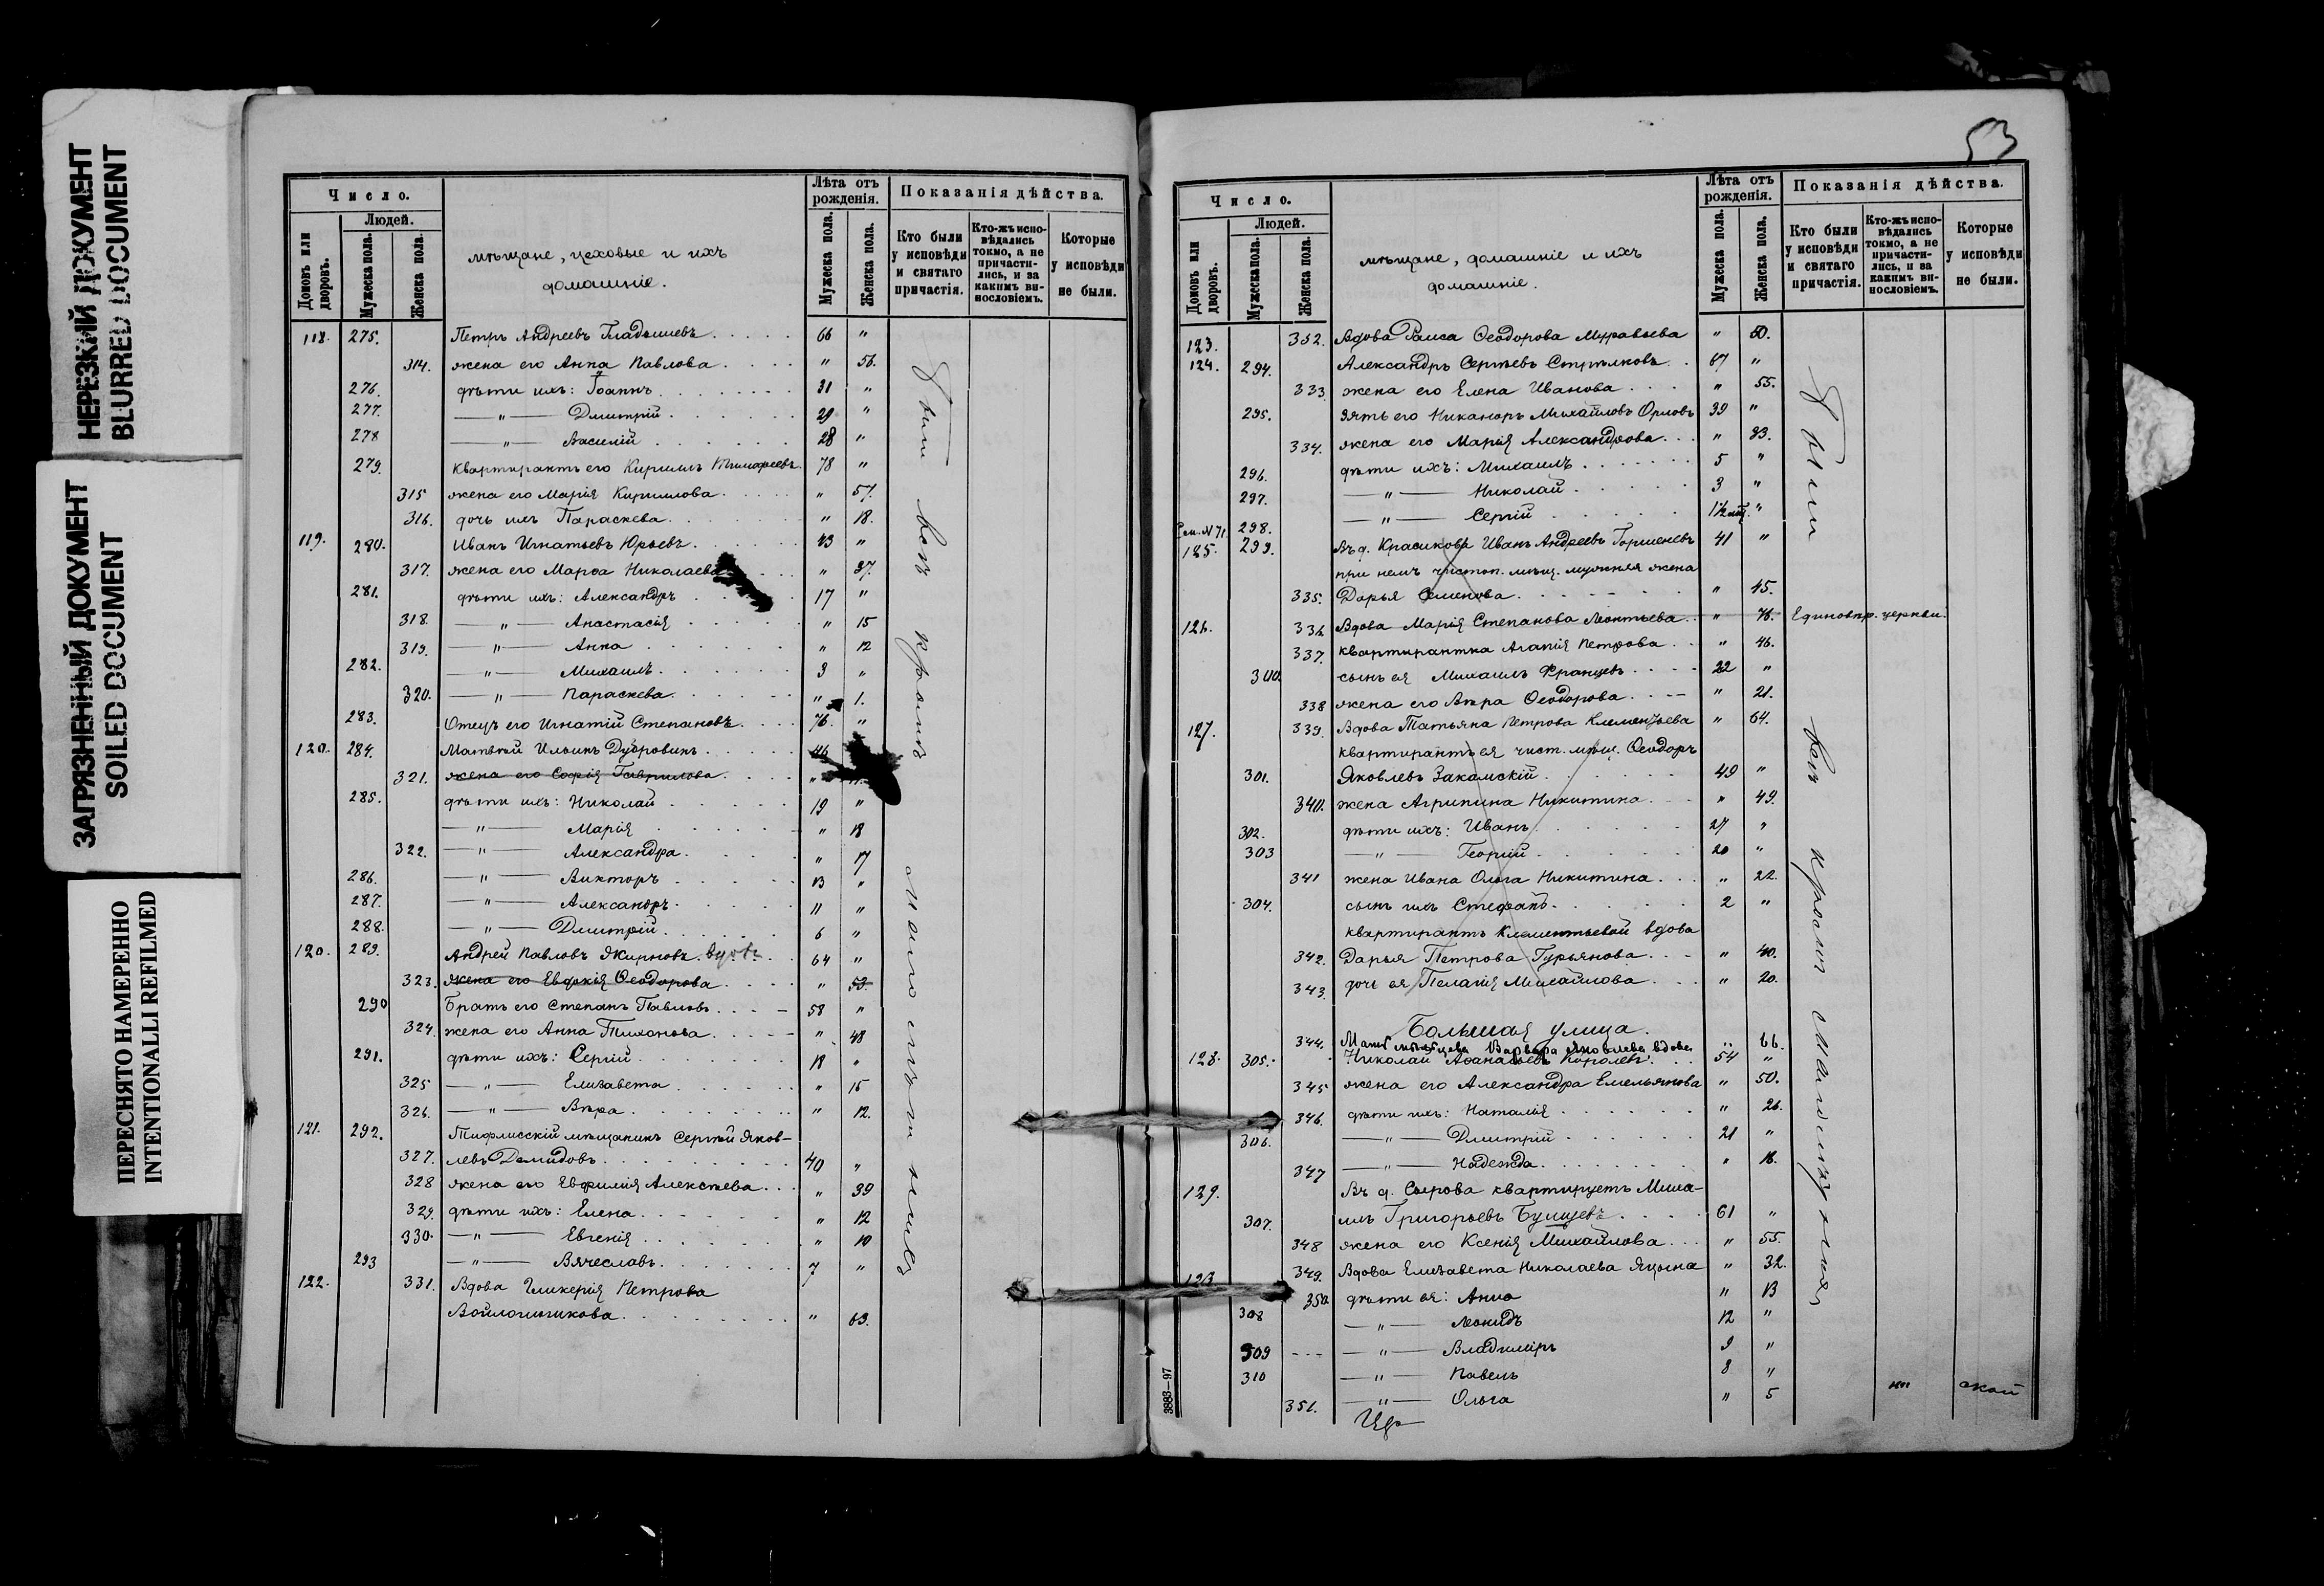 НЕРЕЗКИЙ ДОКУМЕНТ
BLURRED DOCUMENT
ЗАГРЯЗНЕННЫЙ ДОКУМЕНТ
SOILED DOCUMENT
ПЕРЕСНЯТО НАМЕРЕННО
INTENTIONALLI REFILMED
Число.
Людей.
Домовъ или дворовъ.
Мужеска пола.
Женска пола.
мѣщане, цеховые и ихъ
домашніе.
Лѣта отъ рожденія.
Мужеска пола.
Женска пола.
Показанія дѣйства.
Кто были у исповѣди и святаго причастія.
Кто-жъ исповѣдались токмо, а не причастились, и за какимъ винословіемъ.
Которые у исповѣди не были.
118. 275. Петръ Андреевъ Гладышевъ 66 "
314. жена его Анна Павлова " 56.
276. дѣти ихъ: Іоаннъ 31 "
277. —"— Дмитрій 29 "
278 —"— Василій 28 "
279. Квартирантъ его Кириллъ Тимофеевъ 78 "
315 жена его Марія Кириллова " 57.
316. дочь ихъ Параскева " 18.
119. 280. Иванъ Игнатьевъ Юрьевъ 43 "
317. жена его Марѳа Николаева " 37.
281. дѣти ихъ: Александръ 17 "
318. —"— Анастасія " 15
319. —"— Анна " 12
282. —"— Михаилъ 3 "
320. —"— Параскева " 1.
283. Отецъ его Игнатій Степановъ 76. "
120. 284. Матвѣй Ильинъ Дубровинъ 46
321. жена его Софія Гаврилова "
285. дѣти ихъ: Николай 19 "
—"— Марія " 18
322. —"— Александра " 17
286. —"— Викторъ 13 "
287. —"— Александръ 11 "
288. —"— Дмитрій 6 "
120. 289. Андрей Павловъ Жирновъ вдовъ 64 "
323. жена его Евдокія Ѳеодорова " 53.
290 Братъ его Степанъ Павловъ 58 "
324. жена его Анна Тихонова " 48
291. дѣти ихъ: Сергій 18 "
325 —"— Елизавета " 15
326. —"— Вѣра " 12.
121. 292. Тифлисскій мѣщанинъ Сергѣй Яков-
327. левъ Демидовъ 40 "
328 жена его Евфимія Алексѣева " 39
329. дѣти ихъ: Елена " 12
330. —"— Евгенія " 10
293 —"— Вячеславъ 7 "
122. 331. Вдова Гликерія Петрова
Войлошникова " 63.
Были всѣ кромѣ малолѣтнихъ
53
Число.
Людей.
Домовъ или дворовъ.
Мужеска пола.
Женска пола.
мѣщане, домашніе и ихъ
домашніе.
Лѣта отъ рожденія.
Мужеска пола.
Женска пола.
Показанія дѣйства.
Кто были у исповѣди и святаго причастія.
Кто-жъ исповѣдались токмо, а не причастились, и за какимъ винословіемъ.
Которые у исповѣди не были.
123. 332. Вдова Раиса Ѳеодорова Муравьева " 50.
124. 294. Александръ Сергѣевъ Стрѣлковъ 67 "
333 жена его Елена Иванова " 55.
295. Зять его Никаноръ Михайловъ Орловъ 39 "
334. жена его Марія Александрова " 33.
296. дѣти ихъ: Михаилъ 5 "
297. —"— Николай 3 "
298. —"— Сергій "
См. № 71
125. 299. Въ д. Красикова Иванъ Андреевъ Горшеневъ 41 "
при немъ чистоп. мѣщ. мужняя жена
335. Дарья Семенова " 45.
126. 336 Вдова Марія Степанова Леонтьева " 76. Единовѣр. церкви.
337. квартирантка Агапія Петрова " 46.
300. сынъ ея Михаилъ Францевъ 22 "
338 жена его Вѣра Ѳеодорова " 21.
127. 339. Вдова Татьяна Петрова Клементьева " 64.
квартирантъ ея чист. мѣщ. Ѳеодоръ
301. Яковлевъ Закамскій 49 "
340. жена Агрипина Никитина " 49.
302. дѣти ихъ: Иванъ 27 "
303 —"— Георгій 20 "
341 жена Ивана Ольга Никитина " 22.
304. сынъ ихъ Стефанъ 2 "
квартирантъ Клементьевой вдова
342. Дарья Петрова Гурьянова " 40.
343. дочь ея Пелагія Михайлова " 20.
Большая улица.
344. Варвара Яковлева вдова " 66.
128. 305. Николай Аѳанасьевъ Королевъ 54 "
345 жена его Александра Емельянова " 50.
346. дѣти ихъ: Наталія " 26.
306. —"— Дмитрій 21 "
347 —"— Надежда " 18.
129. Въ д. Сырова квартируетъ Миха-
307. илъ Григорьевъ 61 "
348 жена его Ксенія Михайлова " 55.
349. Вдова Елизавета Николаева " 32.
350. дѣти ея: Анна " 13
308 —"— Леонидъ 12 "
309 —"— Владиміръ 9 "
310 —"— Павелъ 8 "
351. —"— Ольга " 5
Были всѣ кромѣ
3883—97